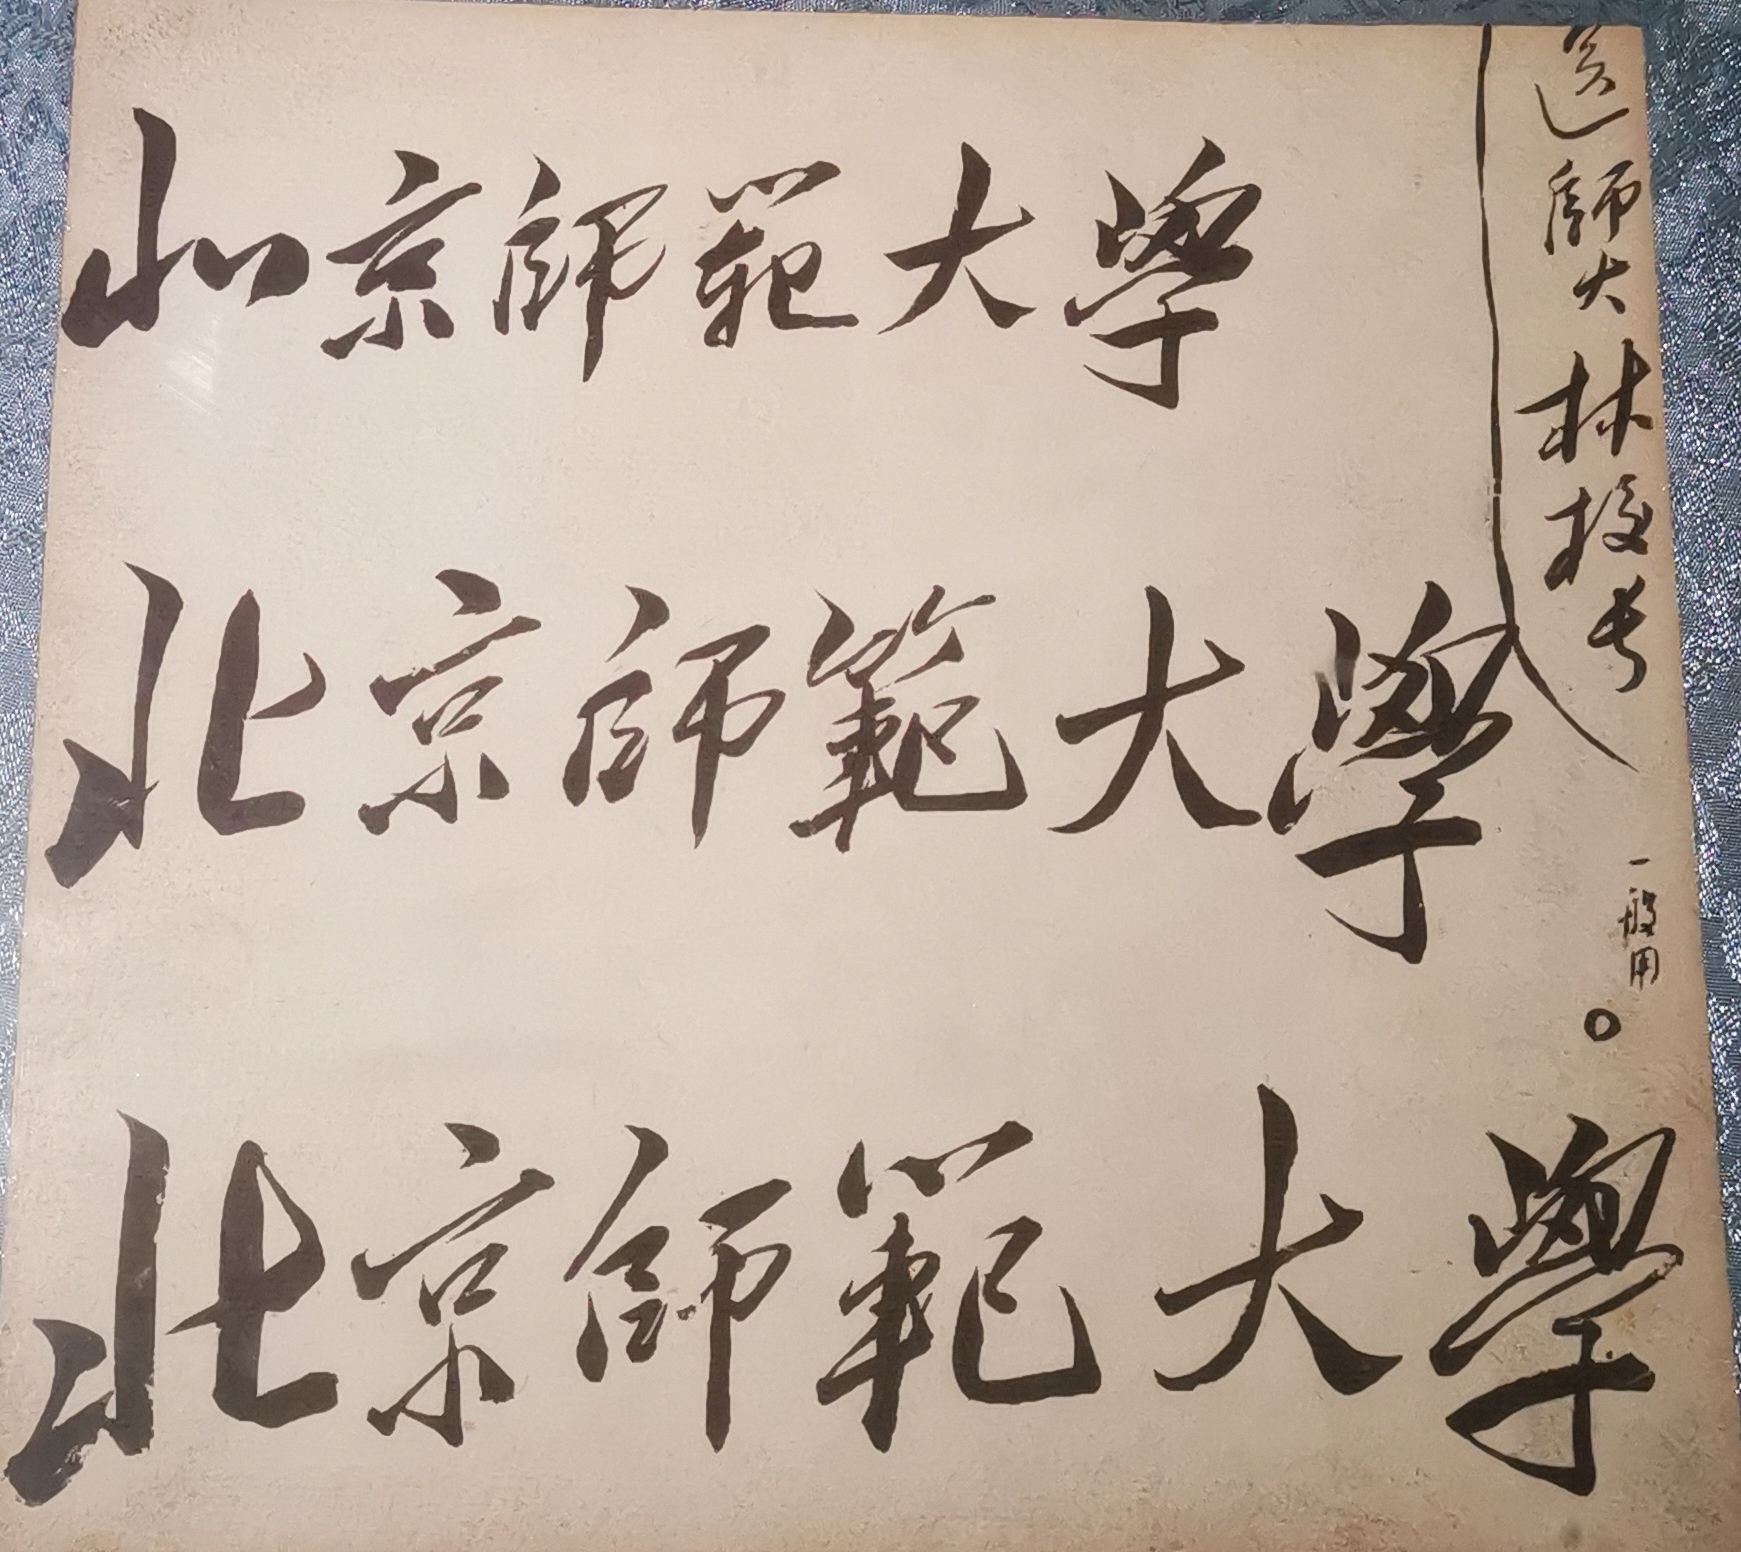 北京師範大學
北京師範大學
北京師範大學
送師大林校长
一般用